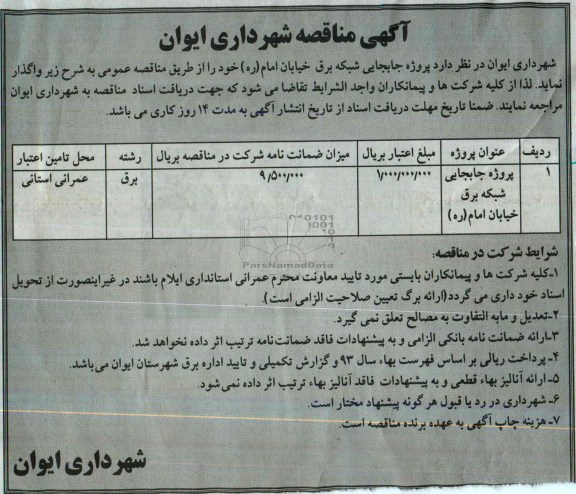 آگهی مناقصه شهرداری ایوان
شهرداری ایوان در نظر دارد پروژه جابجایی شبکه برق خیابان امام(ره) خود را از طریق مناقصه عمومی به شرح زیر واگذار
نماید. لذا از کلیه شرکت ها و پیمانکاران واجد الشرایط تقاضا می شود که جهت دریافت اسناد مناقصه به شهرداری ایوان
مراجعه نمایند. ضمنا تاریخ مهلت دریافت اسناد از تاریخ انتشار آگهی به مدت ۱۴ روز کاری می باشد.
ردیف عنوان پروژه مبلغ اعتبار بریال میزان ضمانت نامه شرکت در مناقصه بریال رشته محل تامین اعتبار
۱ پروژه جابجایی ۱/۰۰۰/۰۰۰/۰۰۰ ۹/۵۰۰/۰۰۰ برق عمرانی استانی
شبکه برق
خیابان امام(ره)
ParsNamadData
شرایط شرکت در مناقصه:
۱-کلیه شرکت ها و پیمانکاران بایستی مورد تایید معاونت محترم عمرانی استانداری ایلام باشند در غیراینصورت از تحویل
اسناد خود داری می گردد(ارائه برگ تعیین صلاحیت الزامی است).
۲-تعدیل و مابه التفاوت به مصالح تعلق نمی گیرد.
۳-ارائه ضمانت نامه بانکی الزامی و به پیشنهادات فاقد ضمانت‌نامه ترتیب اثر داده نخواهد شد.
۴- پرداخت ریالی بر اساس فهرست بهاء سال ۹۳ و گزارش تکمیلی و تایید اداره برق شهرستان ایوان می‌باشد.
۵- ارائه آنالیز بهاء قطعی و به پیشنهادات فاقد آنالیز بهاء ترتیب اثر داده نمی‌شود.
۶- شهرداری در رد یا قبول هر گونه پیشنهاد مختار است.
۷- هزینه چاپ آگهی به عهده برنده مناقصه است.
شهرداری ایوان